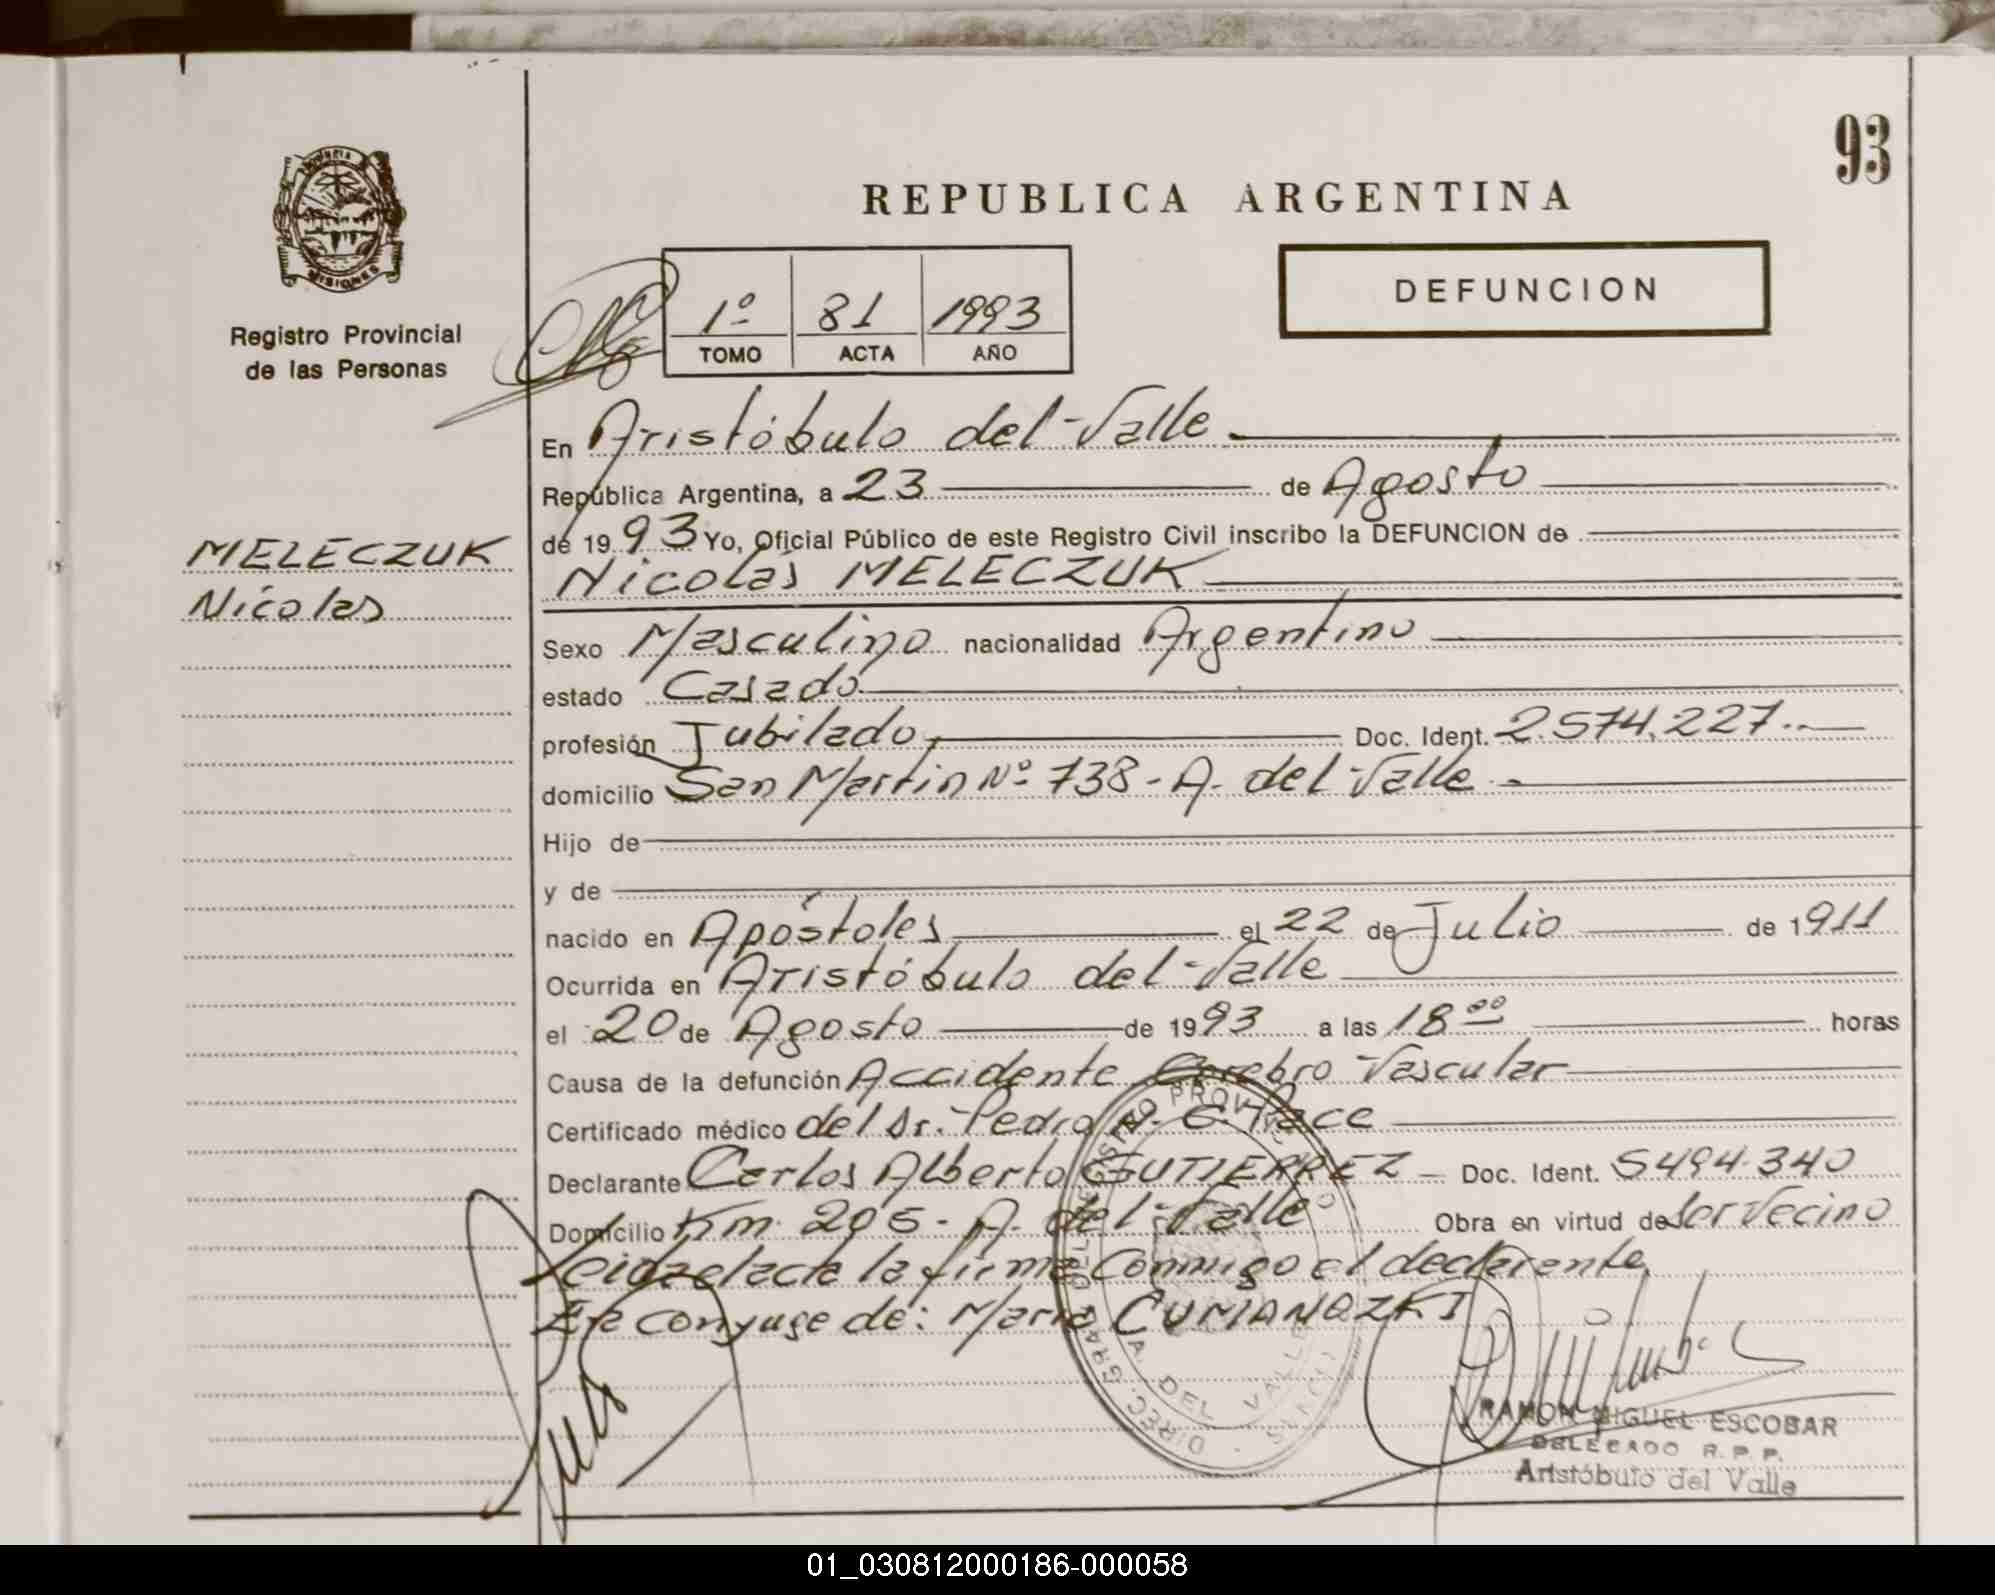 93
REPUBLICA ARGENTINA
PROVINCIA
MISIONES
Registro Provincial
de las Personas
1º 81 1993
TOMO ACTA AÑO
DEFUNCION
En Aristóbulo del Valle
República Argentina, a 23 de Agosto
de 1993 Yo, Oficial Público de este Registro Civil inscribo la DEFUNCION de
MELECZUK
Nicolás
Nicolás MELECZUK
Sexo Masculino nacionalidad Argentino
estado Casado
profesión Jubilado Doc. Ident. 2.574.227
domicilio San Martin Nº 738 - A. del Valle
Hijo de
y de
nacido en Apóstoles el 22 de Julio de 1911
Ocurrida en Aristóbulo del Valle
el 20 de Agosto de 1993 a las 18 00 horas
Causa de la defunción Accidente Cerebro Vascular
Certificado médico del Dr. Pedro
Declarante Carlos Alberto GUTIERREZ Doc. Ident. 5494.340
Domicilio Km. 205 - A. del Valle Obra en virtud de Ser Vecino
Leida el acta la firma conmigo el declarante
Era conyuge de: Maria
DIREC. GRAL. DEL REGISTRO PROVINC
A. DEL VALLE
RAMON MIGUEL ESCOBAR
DELEGADO R. P. P.
Aristóbulo del Valle
01_030812000186-000058